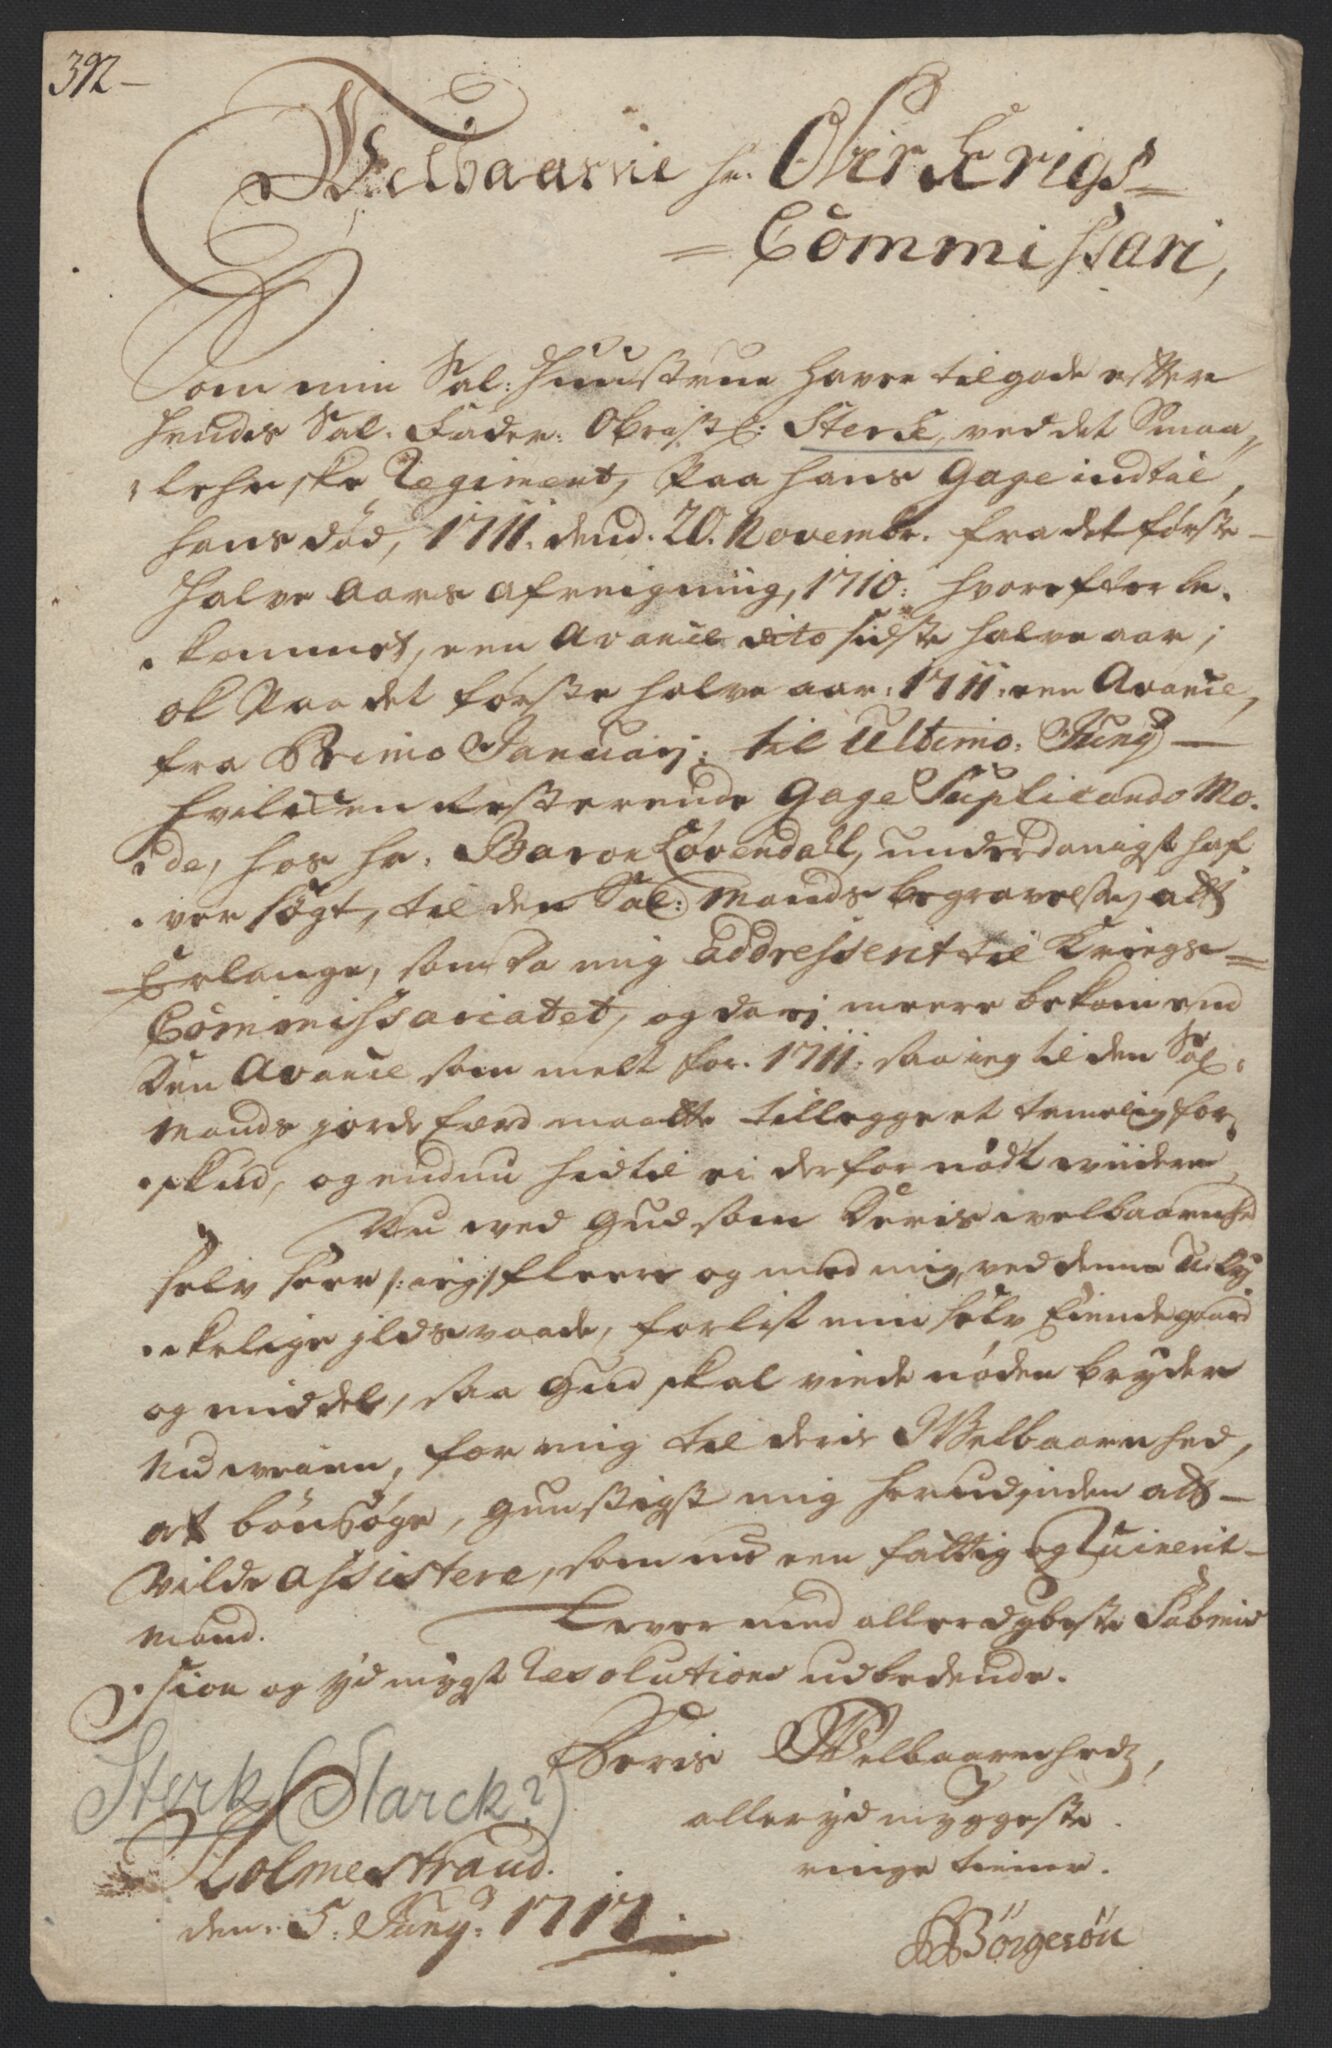 392
Velbaarne hr. Ober Krigs=
=Commissari,
Som min Sal: Huustrue haver tilgode efter
hendis Sal. Fader: Obristl: Sterk, ved det Smaa„
lehnske Regiment, paa hans Gage indtil
hans död, 1711. dend. 20. Novembr. fra det første
halve Aars Afreigning, 1710: hvorefter be.
kommet, een Avance dito sidste halve aar;
ok paa det første halve aar: 1711: een Avance,
fra Primo Januarj: til Ultimo: Junij
hvilcken resterende Gage Suplicando Mo.
de, hos hr. Baron Løvendall, underdanigst haf
ver søgt, til den Sal: Mands begravelse, att
Erlange, som da mig addresserit til Kriegs=
Commissariatet, og da ej meere bekom end
den Avance som melt for. 1711: saa ieg til den Sal:
Mands jordefærd maatte tillegge et temelig for,
skud, og endnu hidtil ei derfor nødt viidere
Nu ved Gud som Deris velbaarenhed
selv seer /: ieg / fleere og med mig, ved denne Uly
ckelige jldsvaade, forlist min selv Eiende gaard
og middel, saa Gud skal viide nøden bryder
nu veien, for mig til deris Welbaarenhed,
at bönsöge, gunstigst mig herudjnden att
vilde assistere, som nu een fattig og Ruinerit
Mand. Lever med allerdybeste Submis
sion og ydmygst Resolution udbedende.
Deris Welbaarenhedz,
allerydmyggeste
ringe tiener.
Sterk (Starck?)
Holmestrand.
den: 5: Junij: 1717
Börgesön